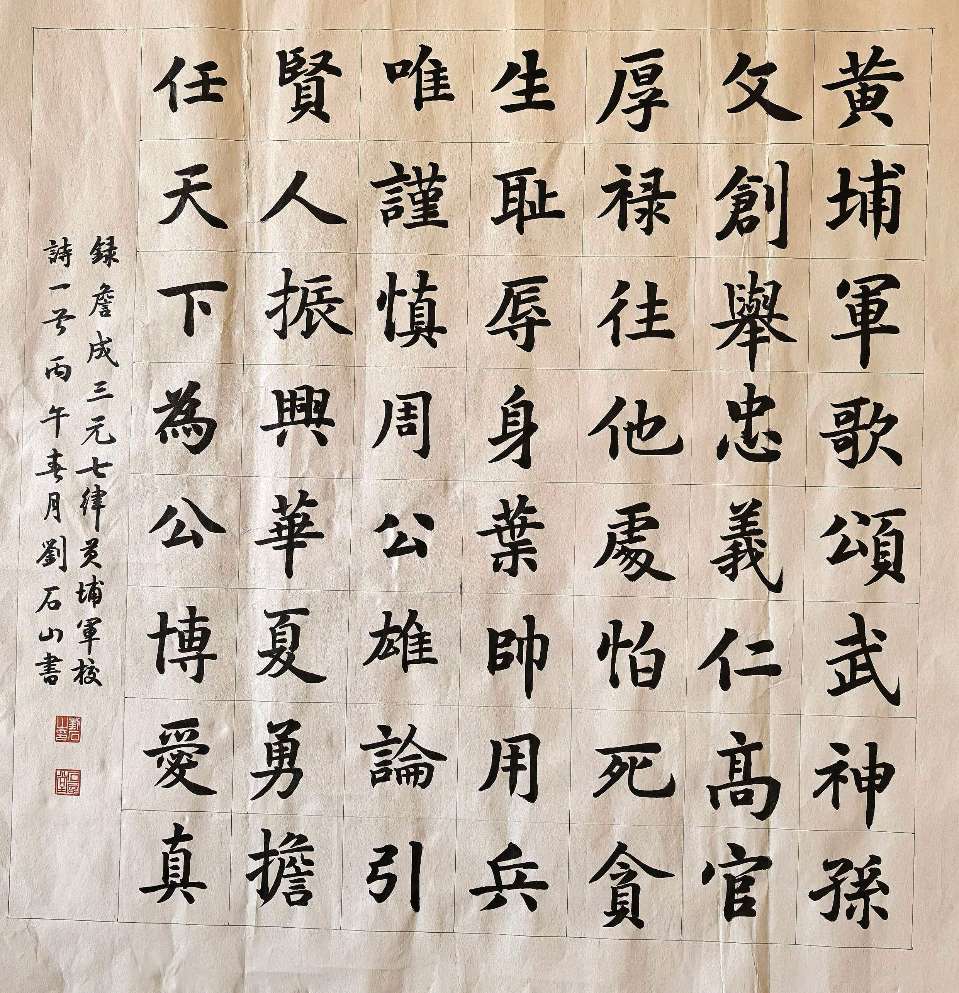 黃埔軍歌頌武神孫
文創舉忠義仁高官
厚禄往他處怕死貪
生耻辱身葉帥用兵
唯謹慎周公雄論引
賢人振興華夏勇擔
任天下為公博愛真
録詹成三元七律黄埔軍校
詩一首丙午春月劉石山書